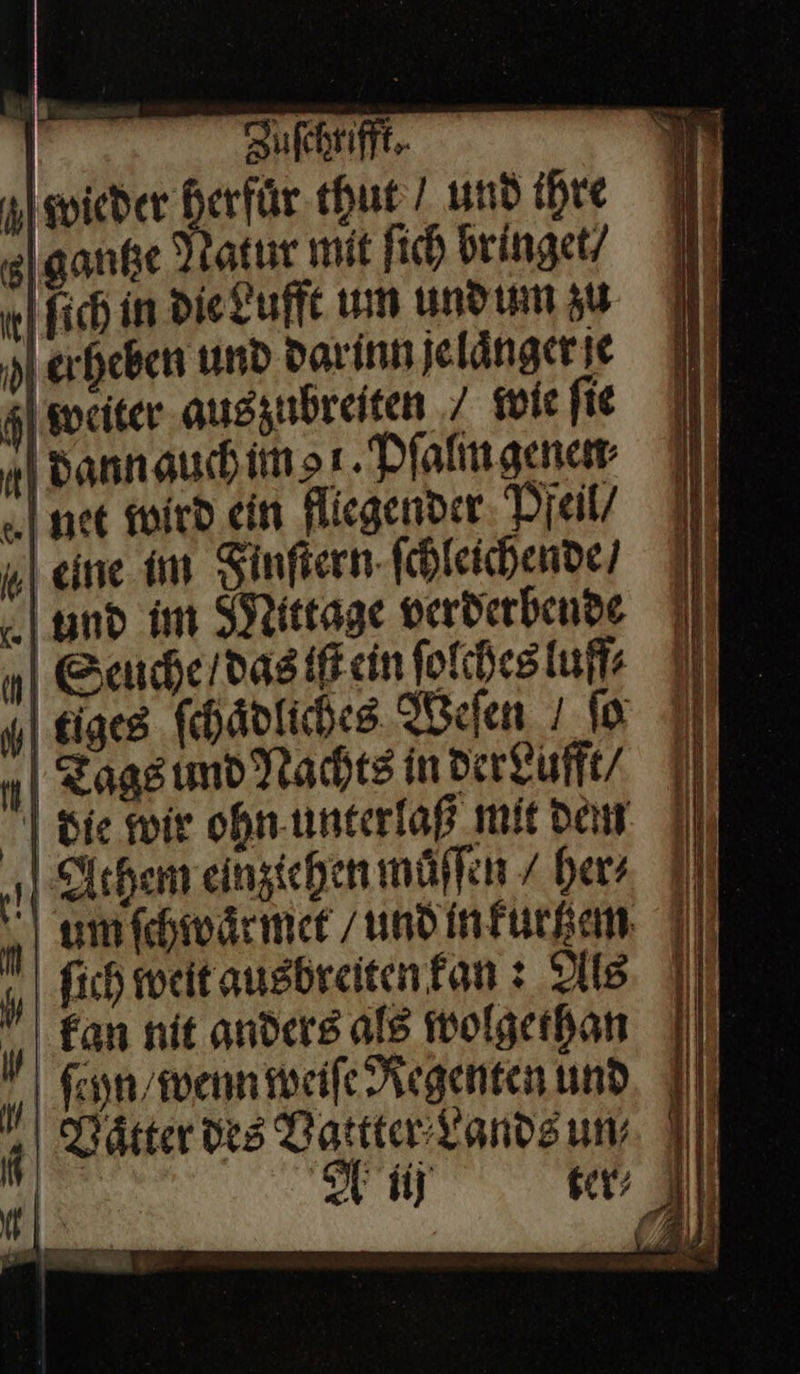 Zuſchrifft.
wieder herfuͤr thut / und ihre
gantze Natur mit ſich bringet/
ſich in die Lufft um und um zu
erheben und darinn je laͤnger je
weiter auszubreiten / wie ſie
dann auch im 91. Pſalm genen⸗
net wird ein fliegender Pfeil/
eine im Finſtern ſchleichende/
und im Mittage verderbende
Seuche/das iſt ein ſolches luff⸗
tiges ſchaͤdliches Weſen / ſo
Tags und Nachts in der Lufft/
die wir ohn unterlaß mit dem
Athem einziehen muͤſſen / her⸗
um ſchwaͤrmet / und in kurtzem
ſich weit ausbreiten kan : Als
kan nit anders als wolgethan
ſeyn/wenn weiſe Regenten und
Vaͤtter des Vattter⸗Lands un⸗
A iij ter⸗